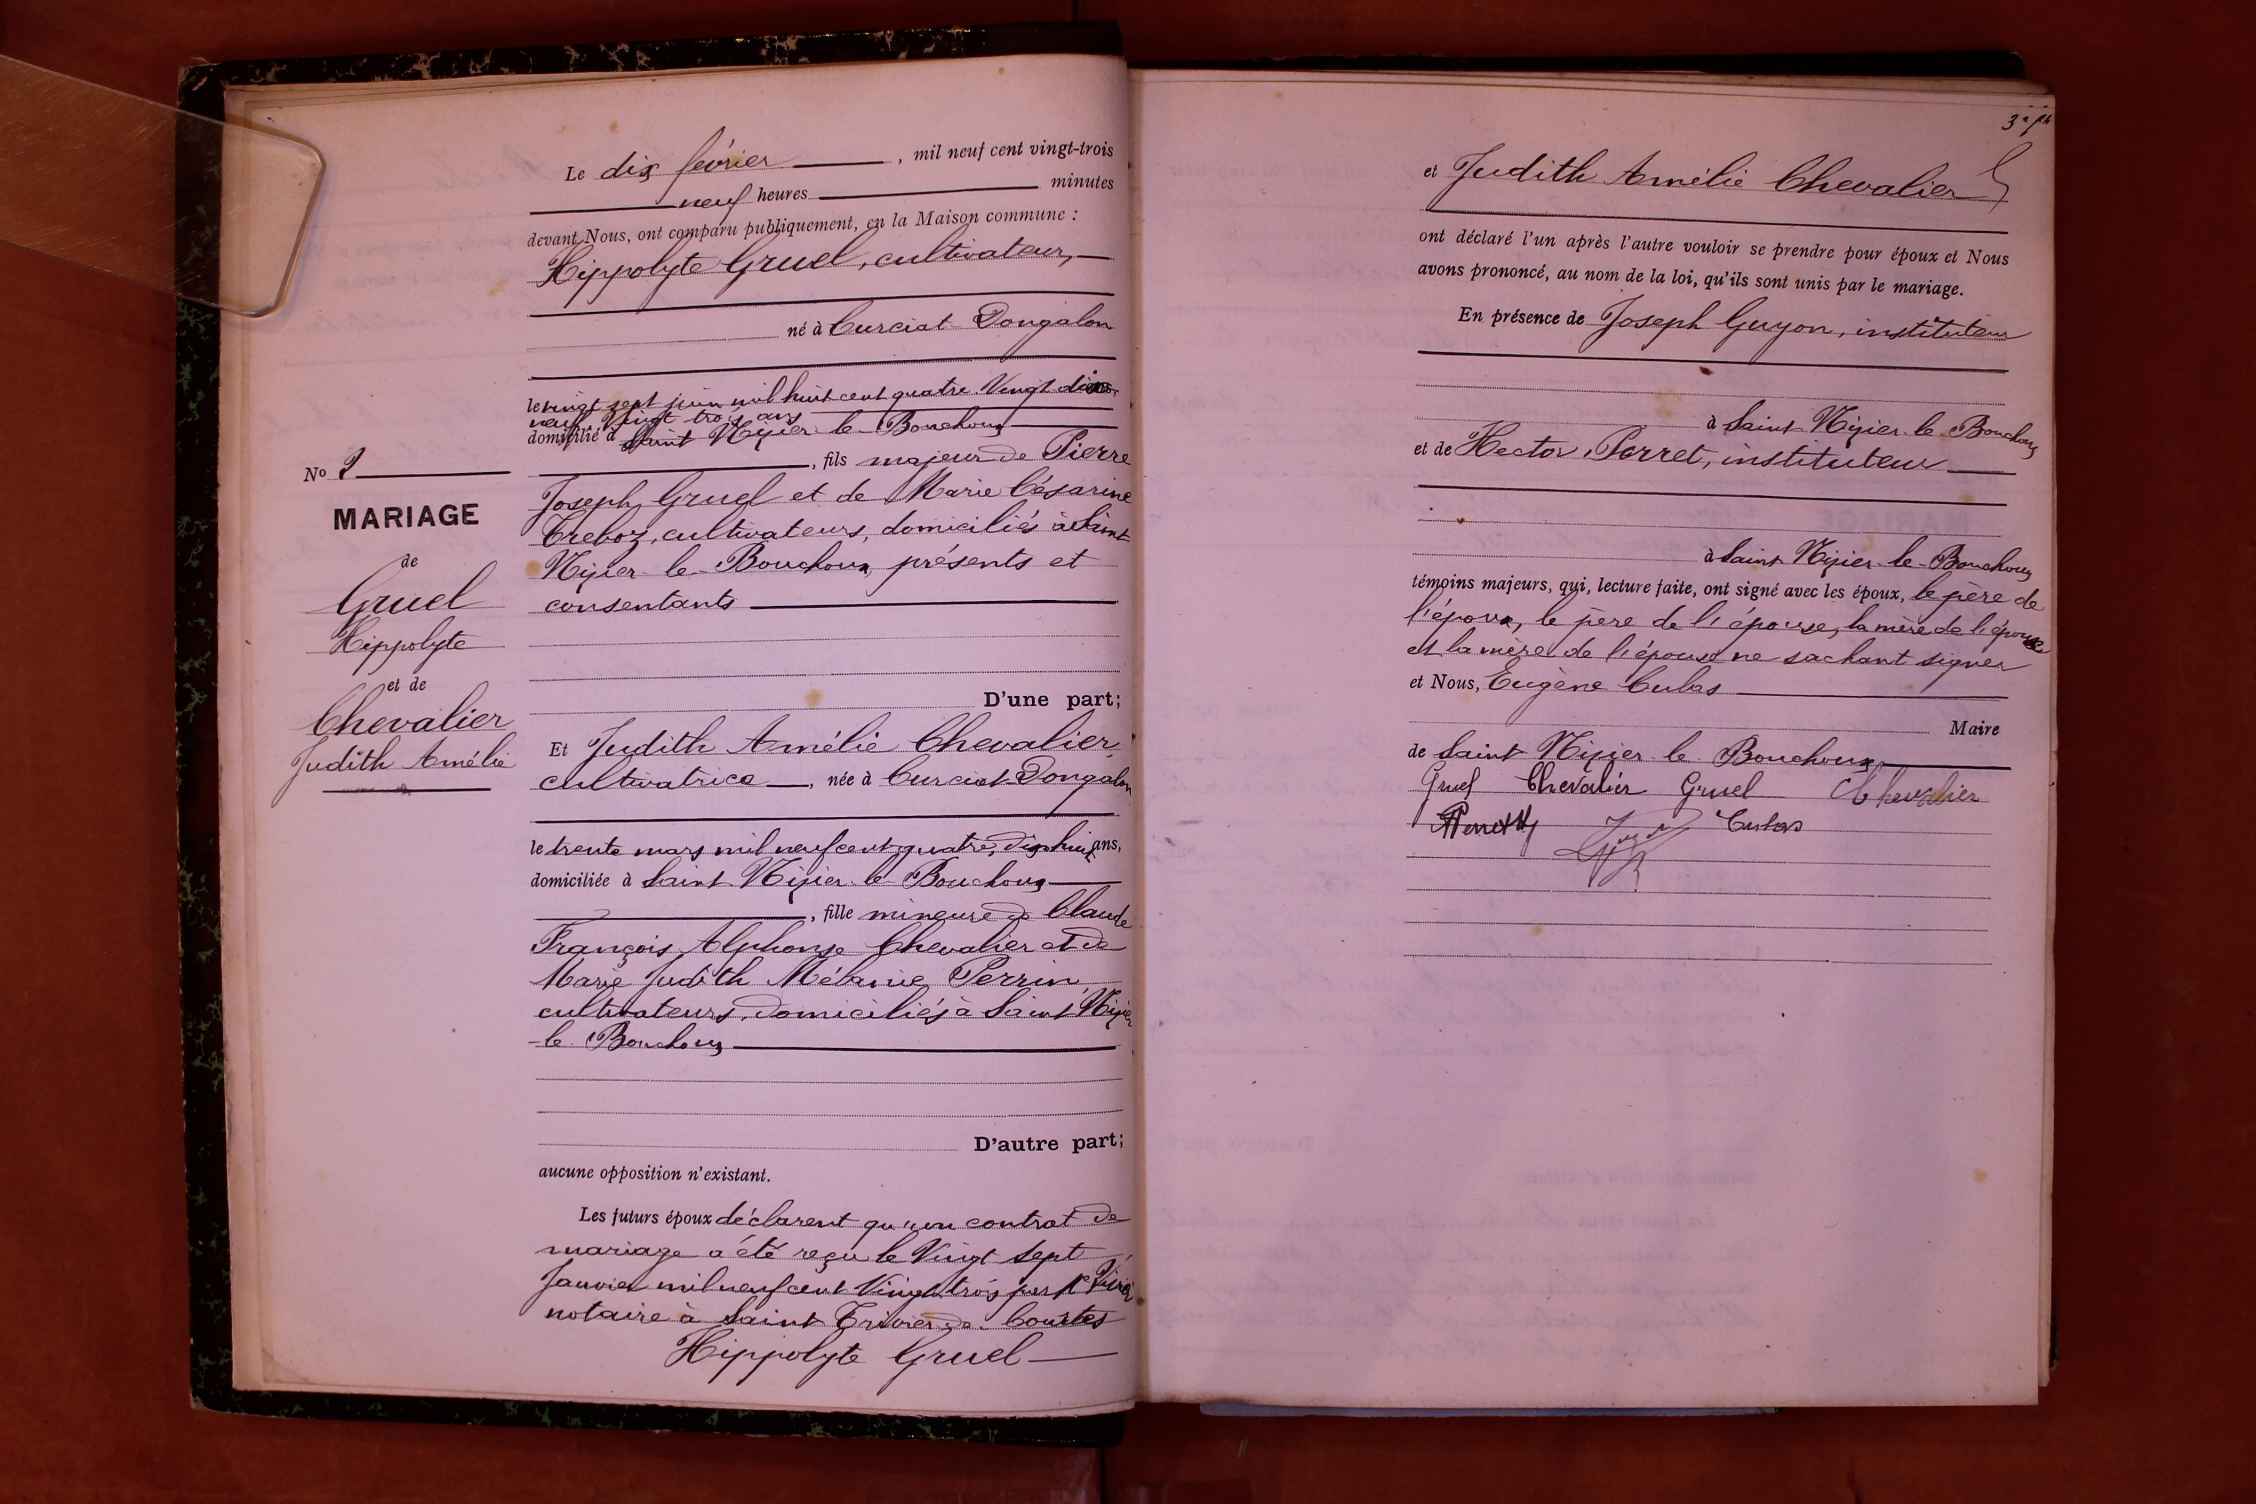 Le dix février , mil neuf cent vingt-trois
neuf heures minutes
devant Nous, ont comparu publiquement, en la Maison commune :
Hippolyte Gruel, cultivateur,
né à Curciat Dongalon
le vingt sept juin mil huit cent quatre Vingt dix
neuf, Vingt trois ans
domicilié à Saint Nizier le Bouchoux
, fils majeur de Pierre
Joseph Gruel et de Marie Césarine
Treboz, cultivateurs, domiciliés à Saint
Nizier le Bouchoux, présents et
consentants
D'une part;
Et Judith Amélie Chevalier
cultivatrice , née à Curciat Dongalon
le trente mars mil neuf cent quatre, dix huit ans,
domiciliée à Saint Nizier le Bouchoux
, fille mineure de Claude
François Alphonse Chevalier et de
Marie Judith Mélanie Perrin
cultivateurs, domiciliés à Saint Nizier
le Bouchoux
D'autre part;
aucune opposition n'existant.
Les futurs époux déclarent qu'un contrat de
mariage a été reçu le Vingt sept
Janvier mil neuf cent Vingt trois par Me
notaire à Saint Trivier de Courtes
Hippolyte Gruel
No 2
MARIAGE
de
Gruel
Hippolyte
et de
Chevalier
Judith Amélie
et Judith Amélie Chevalier
ont déclaré l'un après l'autre vouloir se prendre pour époux et Nous
avons prononcé, au nom de la loi, qu'ils sont unis par le mariage.
En présence de Joseph Guyon, instituteur
à Saint Nizier le Bouchoux
et de Hector Perret, instituteur
à Saint Nizier le Bouchoux
témoins majeurs, qui, lecture faite, ont signé avec les époux, le père de
l'époux, le père de l'épouse, la mère de l'épouse
et la mère de l'épouse ne sachant signer
et Nous, Eugène Culas
Maire
de Saint Nizier le Bouchoux
Gruel Chevalier Gruel Chevalier
Perret Culas